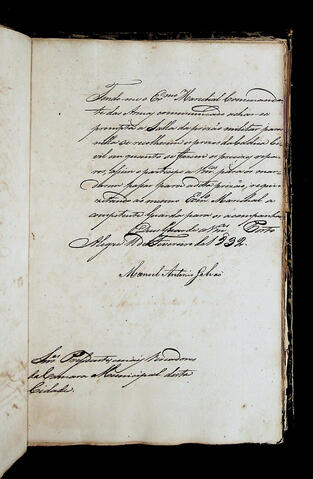 Tendo-me o Ex.mo Marechal Commandan-
te das Armas communicado achar-se
prompta a Salla da prizão militar para
nella se recolherem os prezos da Cadeia Ci-
vil em quanto se fazem os precizos repa-
ros, a participo a V.Sas para os man-
darem passar para a dita prizão, requi-
zitando ao mesmo Ex.mo Marechal a
competente Guarda para os acompanhar.
Deos Guarde a V.Sas Porto
Alegre de Fevereiro de 1832.
Manoel Antonio Galvão
Snr.es Prezidente, e mais Vereadores
da Camara Municipal desta
Cidade.